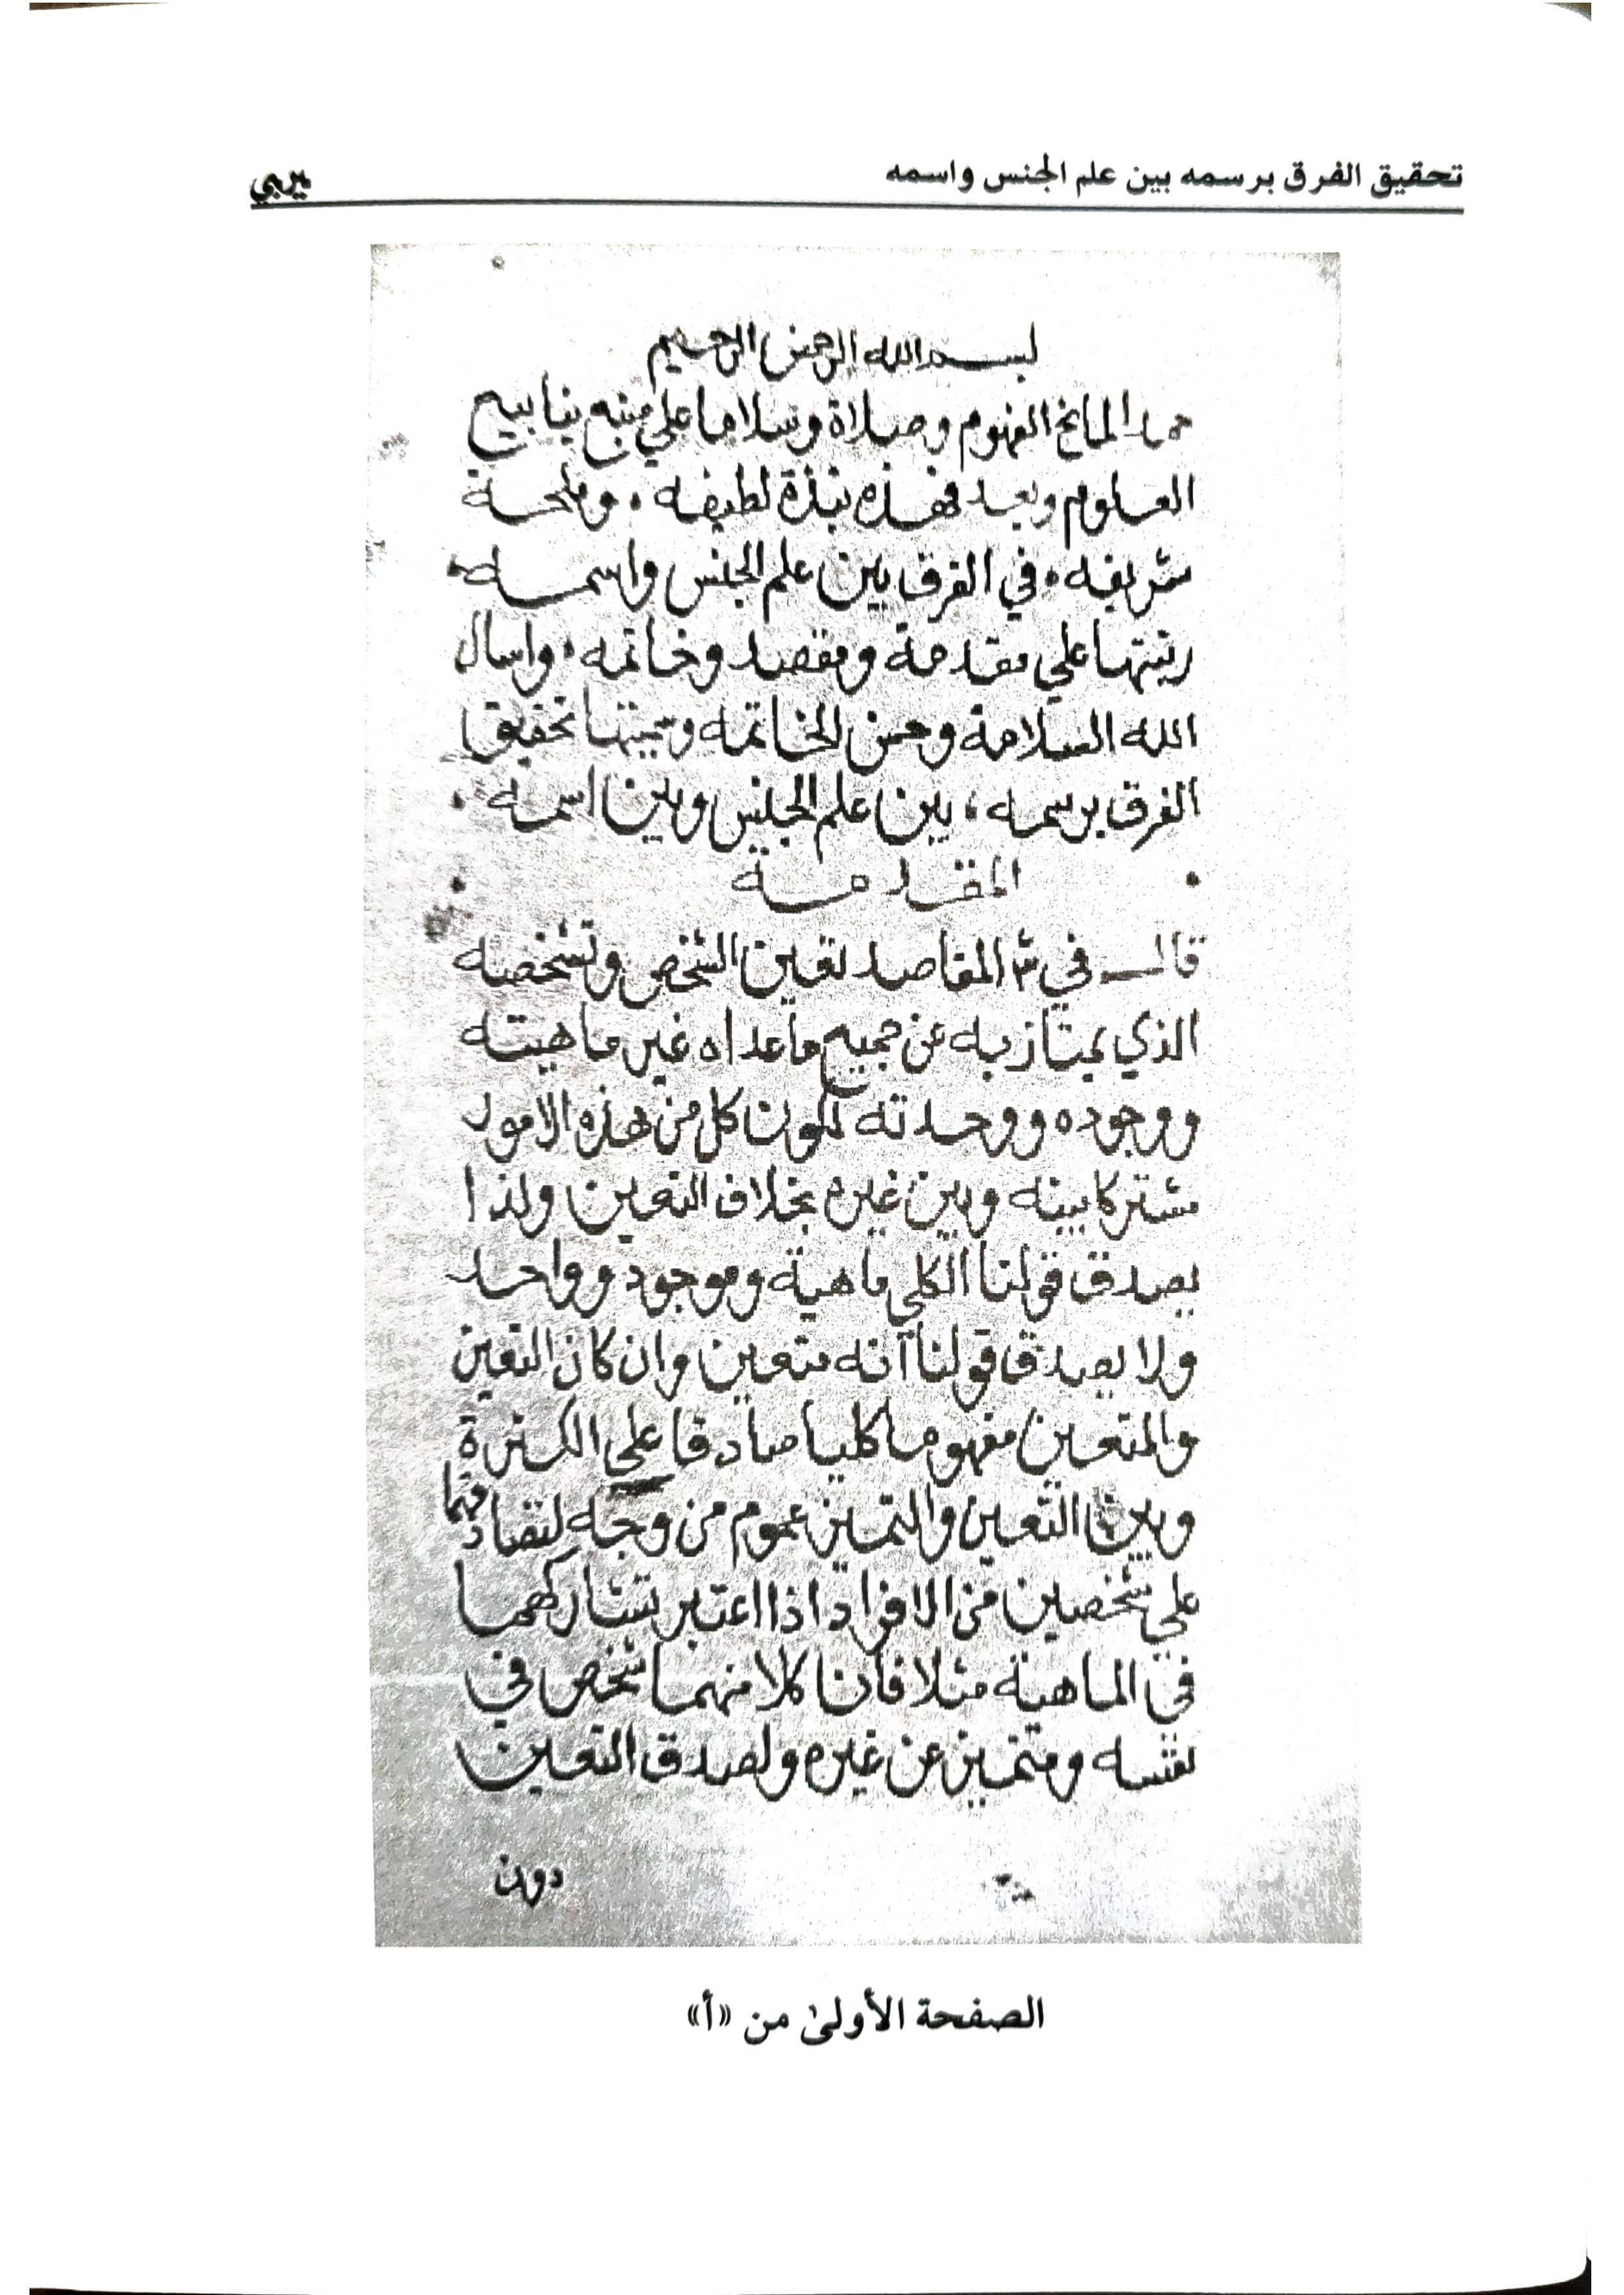 تحقيق الفرق برسمه بين علم الجنس واسمه
يربي
بسم الله الرحمن الرحيم
حمدا لمانح الفهوم وصلاة وسلاما علي منبع ينابيع
العلوم وبعد فهذه نبذة لطيفه . وملحة
شريفه . في الفرق بين علم الجنس واسمه .
رتبتها علي مقدمة ومقصد وخاتمه . واسال
الله السلامة وحسن الخاتمه وسميتها تحقيق
الفرق برسمه ، بين علم الجنس وبين اسمه .
المقدمة
قال في ش المقاصد تعين الشخص وتشخصه
الذي يمتاز به عن جميع ما عداه غير ماهيته
ووجوده ووحدته لكون كل من هذه الامور
مشتركا بينه وبين غيره بخلاف التعين ولذا
يصدق قولنا الكلي ماهية وموجود وواحد
ولا يصدق قولنا انه متعين وان كان التعين
والمتعين مفهوما كليا صادقا علي الكثرة
وبين التعين والتميز عموم من وجه لتصادقهما
علي شخصين من الافراد اذا اعتبر تشاركهما
في الماهية مثلا فان كلا منهما شخص في
نفسه ومتميز عن غيره ولصدق التعين
دون
الصفحة الأولىٰ من «أ»